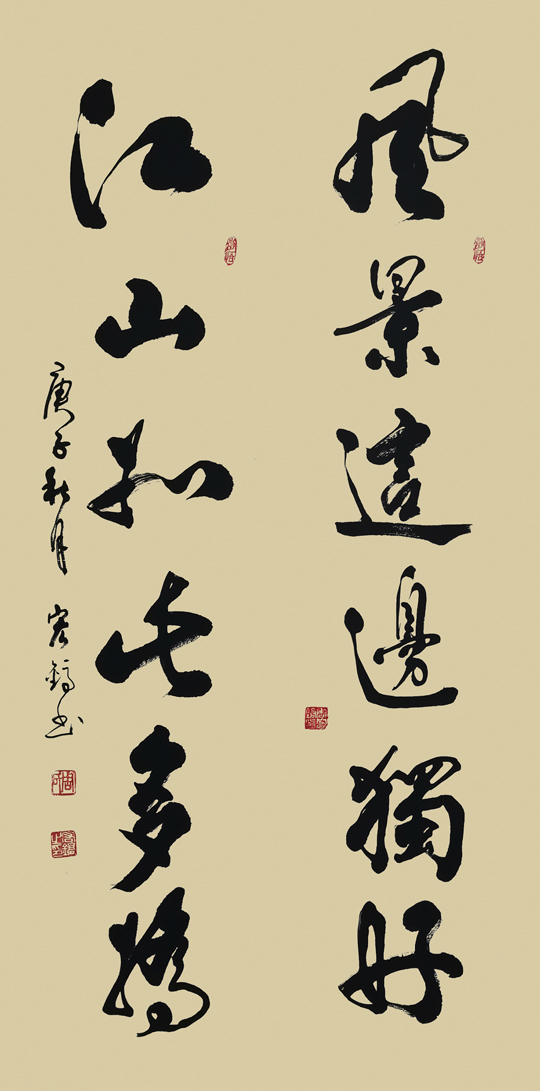 風景這邊獨好
江山如此多嬌
庚子秋月 宏錞书